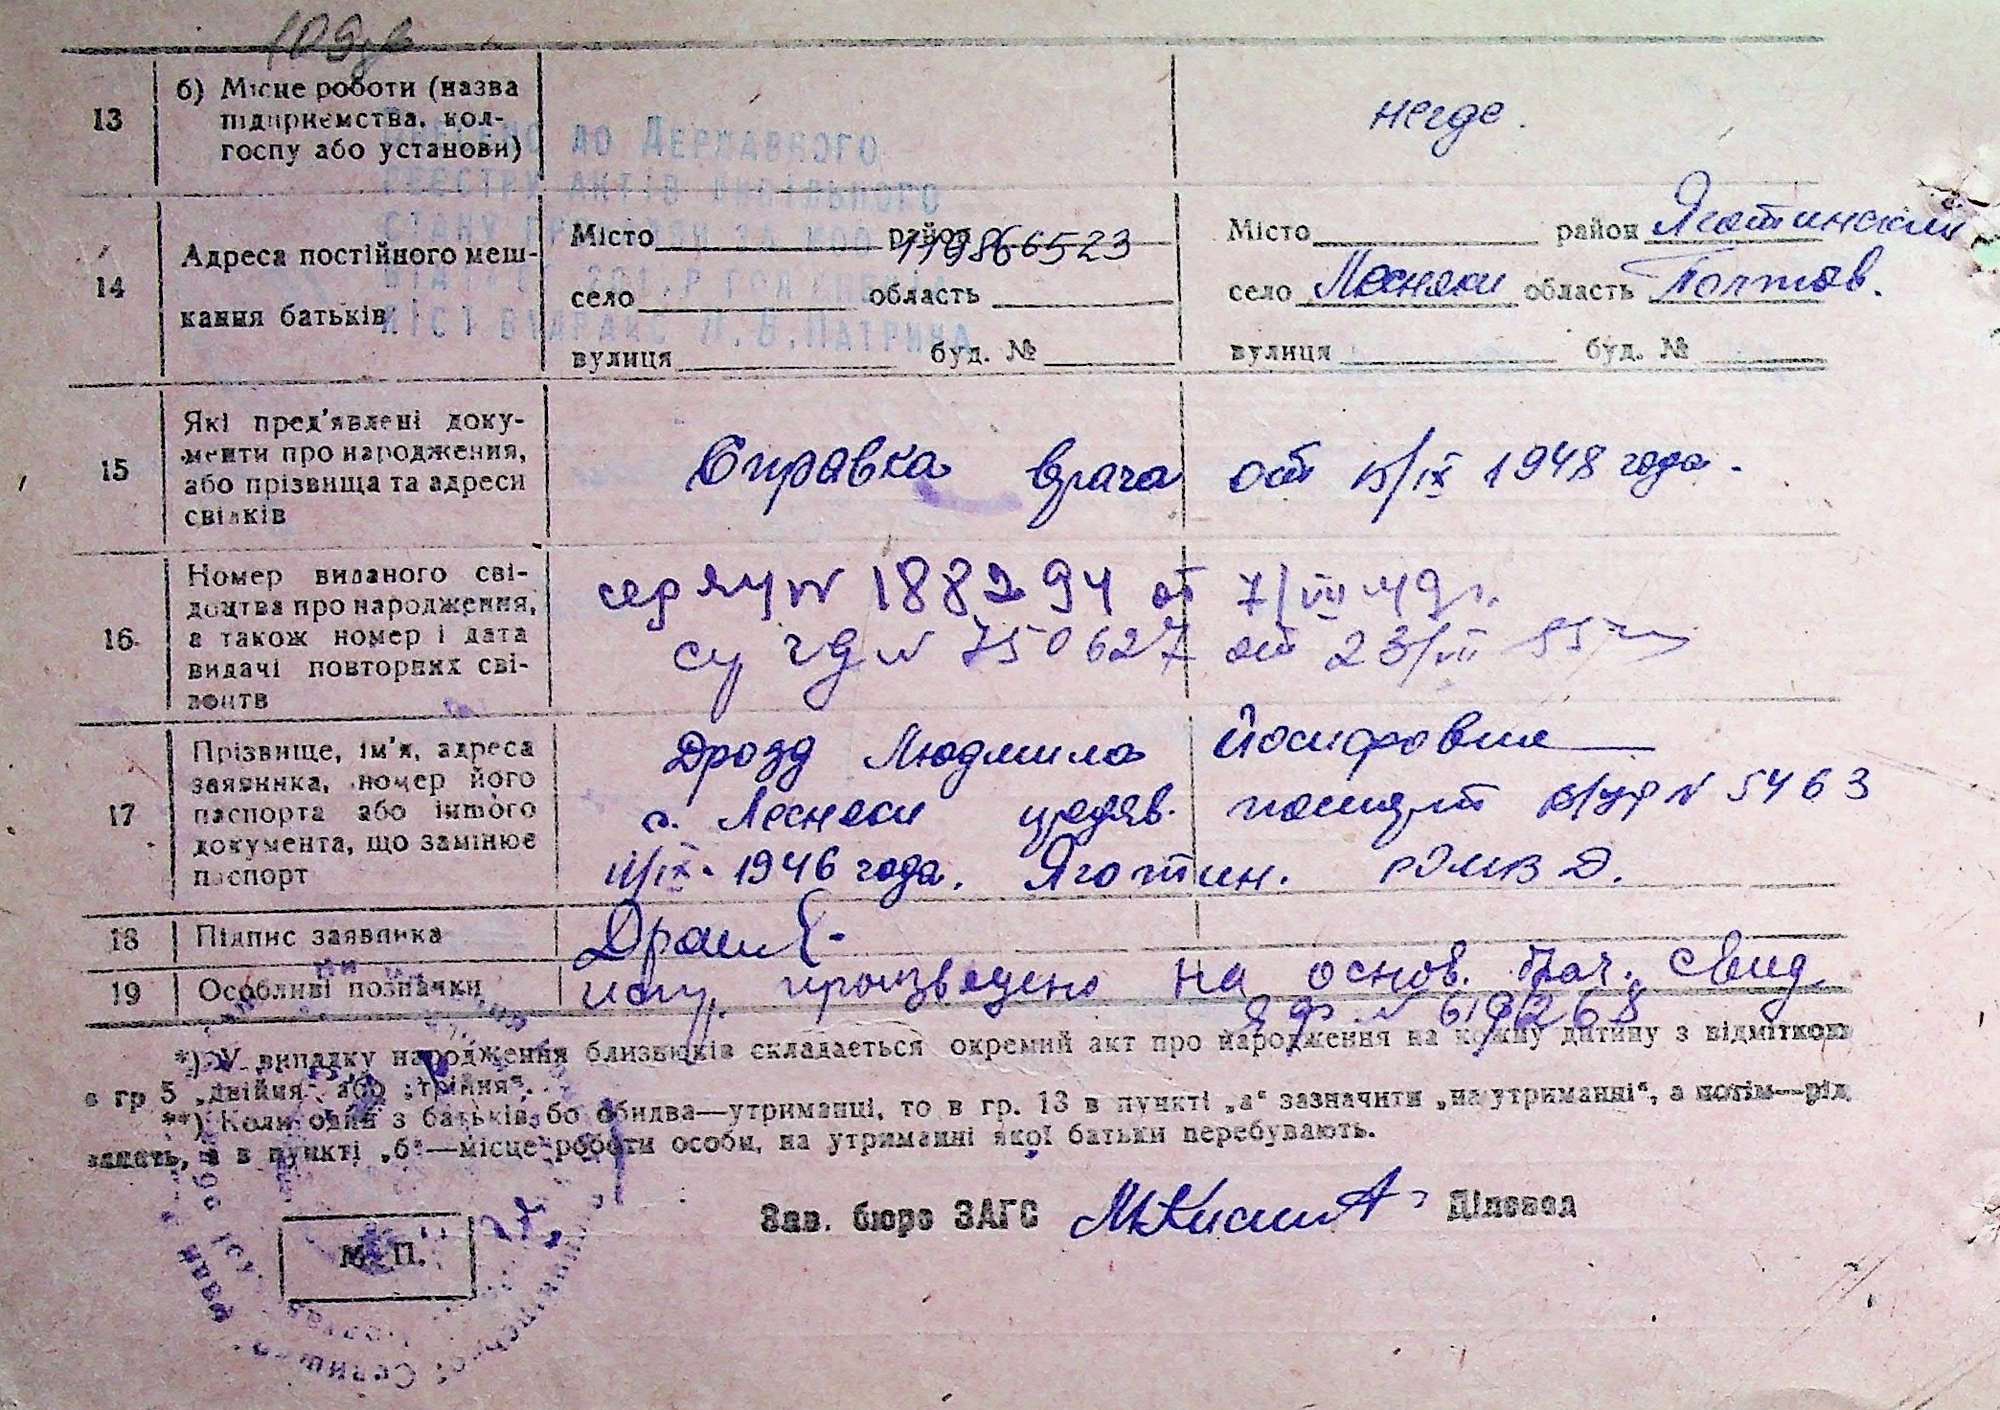 13 б) Місце роботи (назва
підприємства, кол-
госпу або установи)
негде.
до Державного
реєстру актів цивільного
14 Адреса постійного меш-
кання батьків
Місто район 119866523
село область
вулиця буд. №
Місто район Яготинский
село Лесняки область Полтав.
вулиця буд. №
15 Які пред'явлені доку-
менти про народження,
або прізвища та адреси
свідків
Справка врача от 15/IX 1948 года.
16 Номер виданого сві-
доцтва про народження,
а також номер і дата
видачі повторних сві-
доцтв
№ 188294 от 7/VII 49 г.
№ 750627 от 23/VII 55
17 Прізвище, ім'я, адреса
заявника, номер його
паспорта або іншого
документа, що замінює
паспорт
Дрозд Людмила Йосифовна
с. Лесняки предяв. паспорт № 5463
1946 года. Яготин. РОМВД.
18 Підпис заявника
19 Особливі позначки
произведено на основ.
№ 619268
*) У випадку народження близнюків складається окремий акт про народження на кожну дитину з відміткою
в гр 5 „двійня" або „трійня".
**) Коли один з батьків бо обидва—утриманці, то в гр. 13 в пункті „а" зазначити „на утриманні", а потім—рід
занять, а в пункті „б"—місце роботи особи, на утриманні якої батьки перебувають.
Зав. бюро ЗАГС Діловод
М. П.